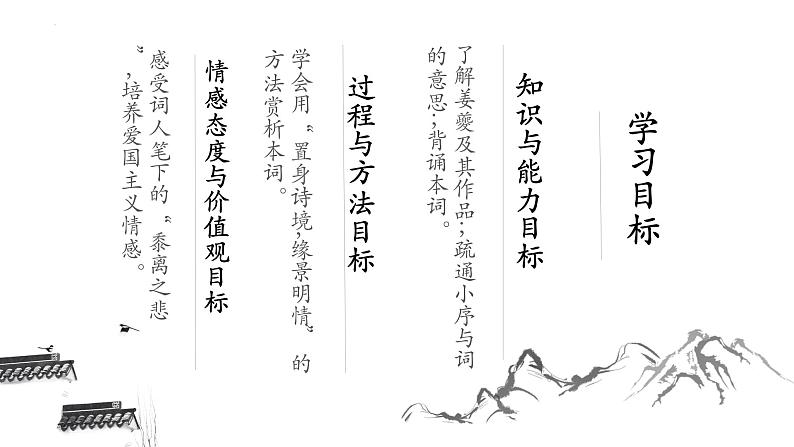 学习目标
知识与能力目标
了解姜夔及其作品；疏通小序与词
的意思；背诵本词。
过程与方法目标
学会用“置身诗境，缘景明情”的
方法赏析本词。
情感态度与价值观目标
感受词人笔下的“黍离之悲
”，培养爱国主义情感。